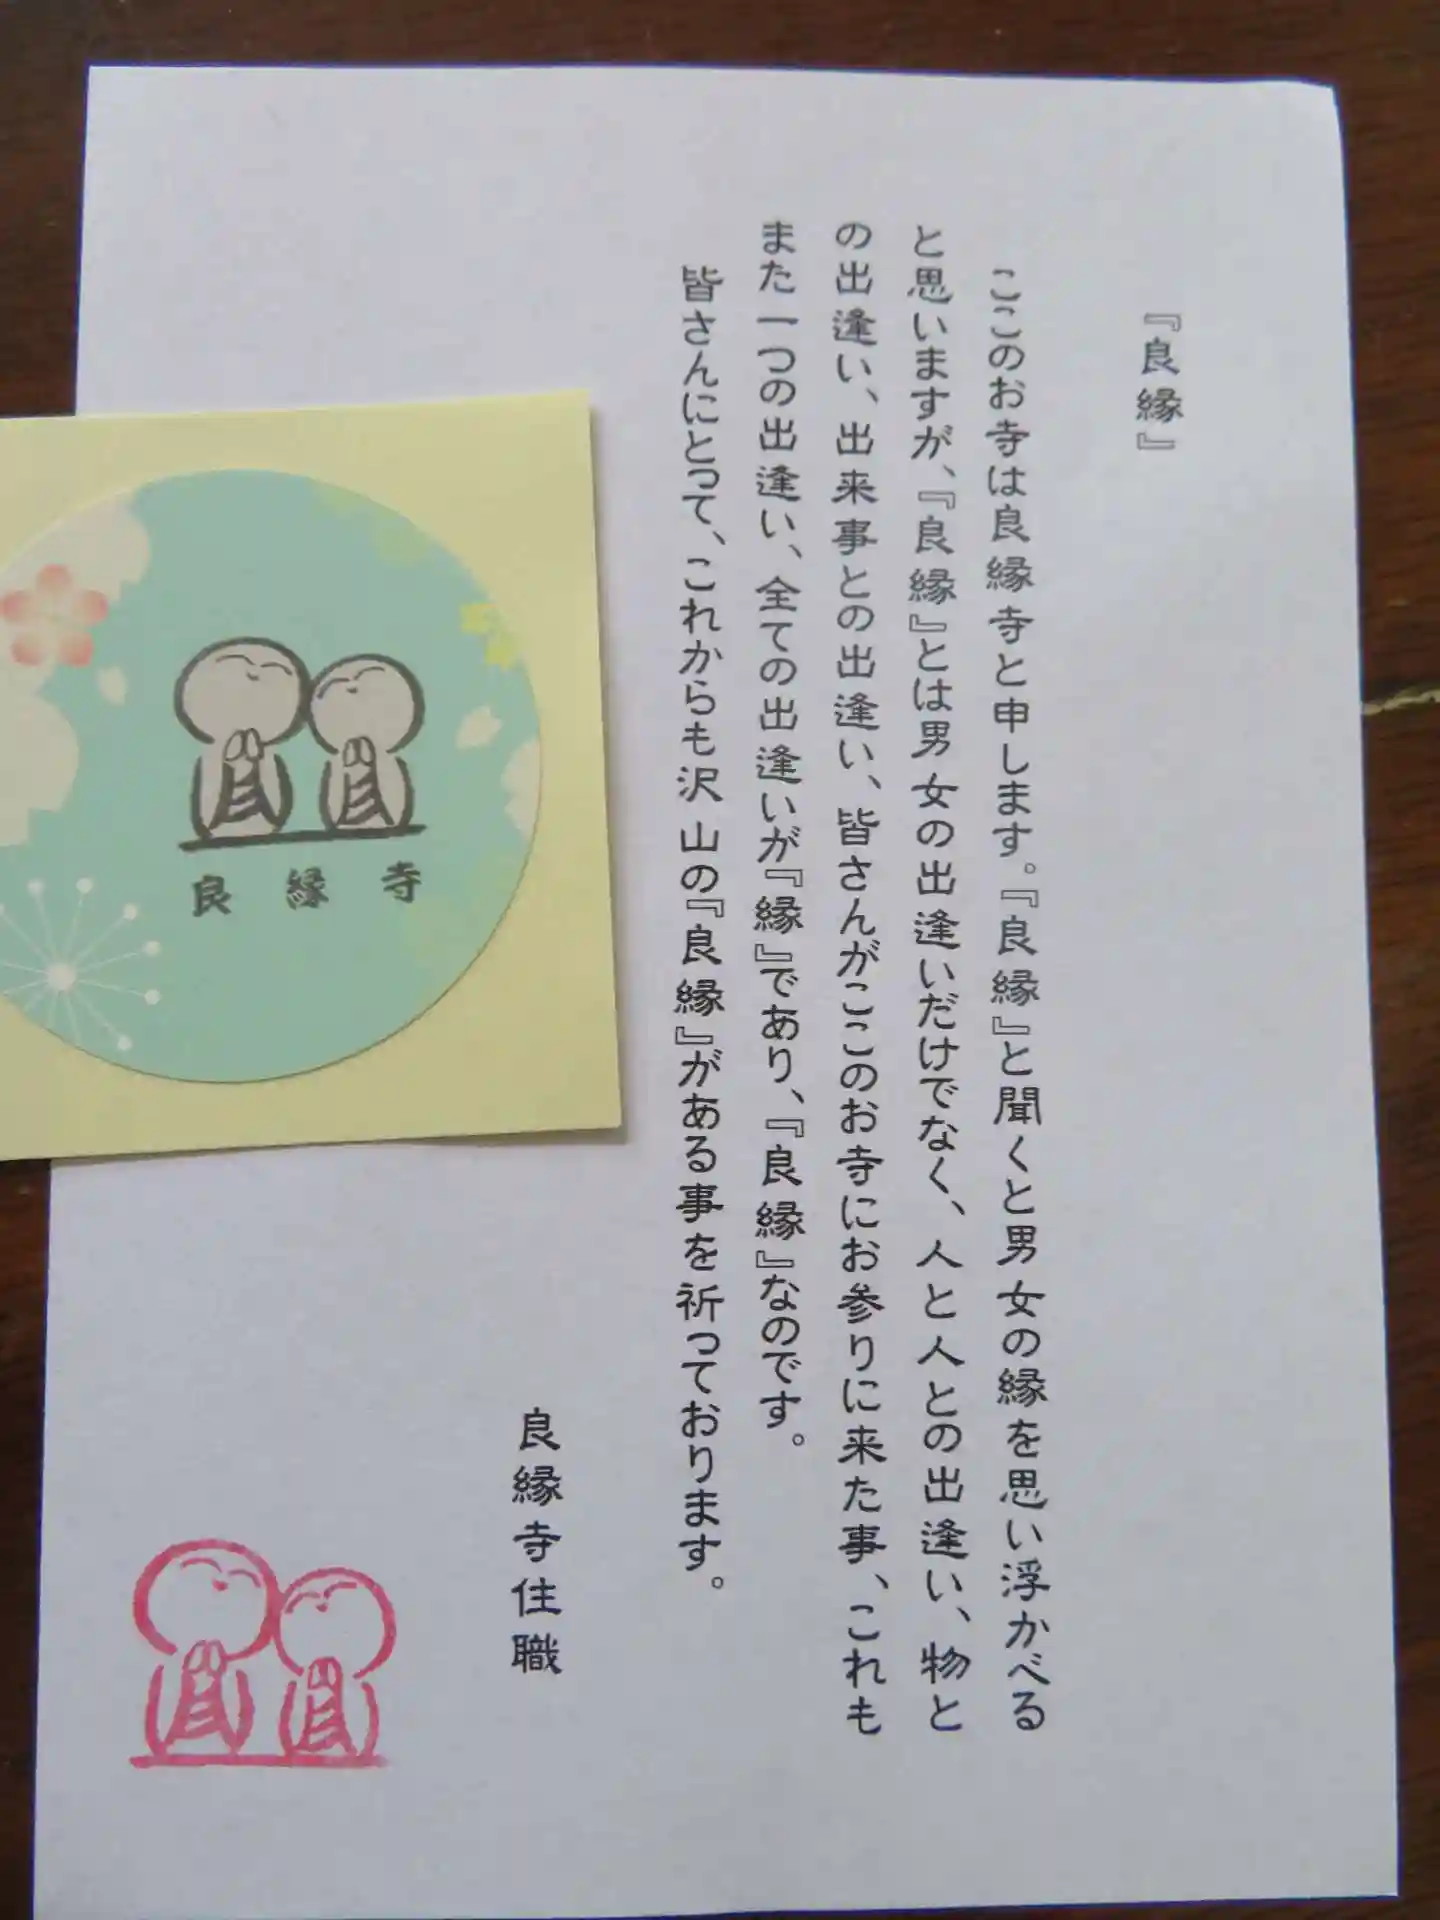 『良縁』
ここのお寺は良縁寺と申します。『良縁』と聞くと男女の縁を思い浮かべる
と思いますが、『良縁』とは男女の出逢いだけでなく、人と人との出逢い、物と
の出逢い、出来事との出逢い、皆さんがここのお寺にお参りに来た事、これも
また一つの出逢い、全ての出逢いが『縁』であり、『良縁』なのです。
皆さんにとって、これからも沢山の『良縁』がある事を祈っております。
良縁寺住職
良縁寺